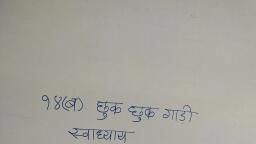 १४(ब) छुक छुक गाडी
स्वाध्याय